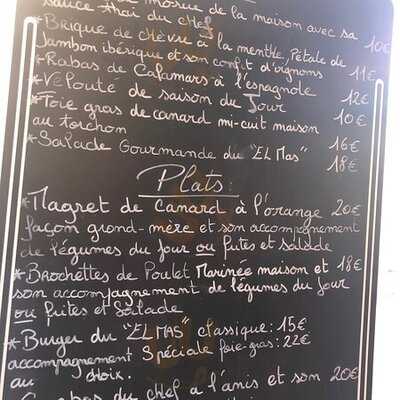 morue de la maison avec sa
sauce thaï du chef 10€
*Brique de chèvre à la menthe, Pétale de
Jambon ibérique et son confit d'oignons 11€
*Rabas de Calamars à l'espagnole 12€
*Velouté de saison du Jour 10€
*Foie gras de canard mi-cuit maison
au torchon 16€
*Salade Gourmande du "EL Mas" 18€
Plats:
*Magret de canard à l'orange 20€
façon grand-mère et son accompagnement
de légumes du jour ou frites et salade
*Brochettes de Poulet Marinée maison et 18€
son accompagnement de légumes du Jour
ou frites et Salade
*Burger du "EL MAS" classique: 15€
accompagnement Spéciale foie-gras: 22€
au choix.
du chef à l'anis et son 20€